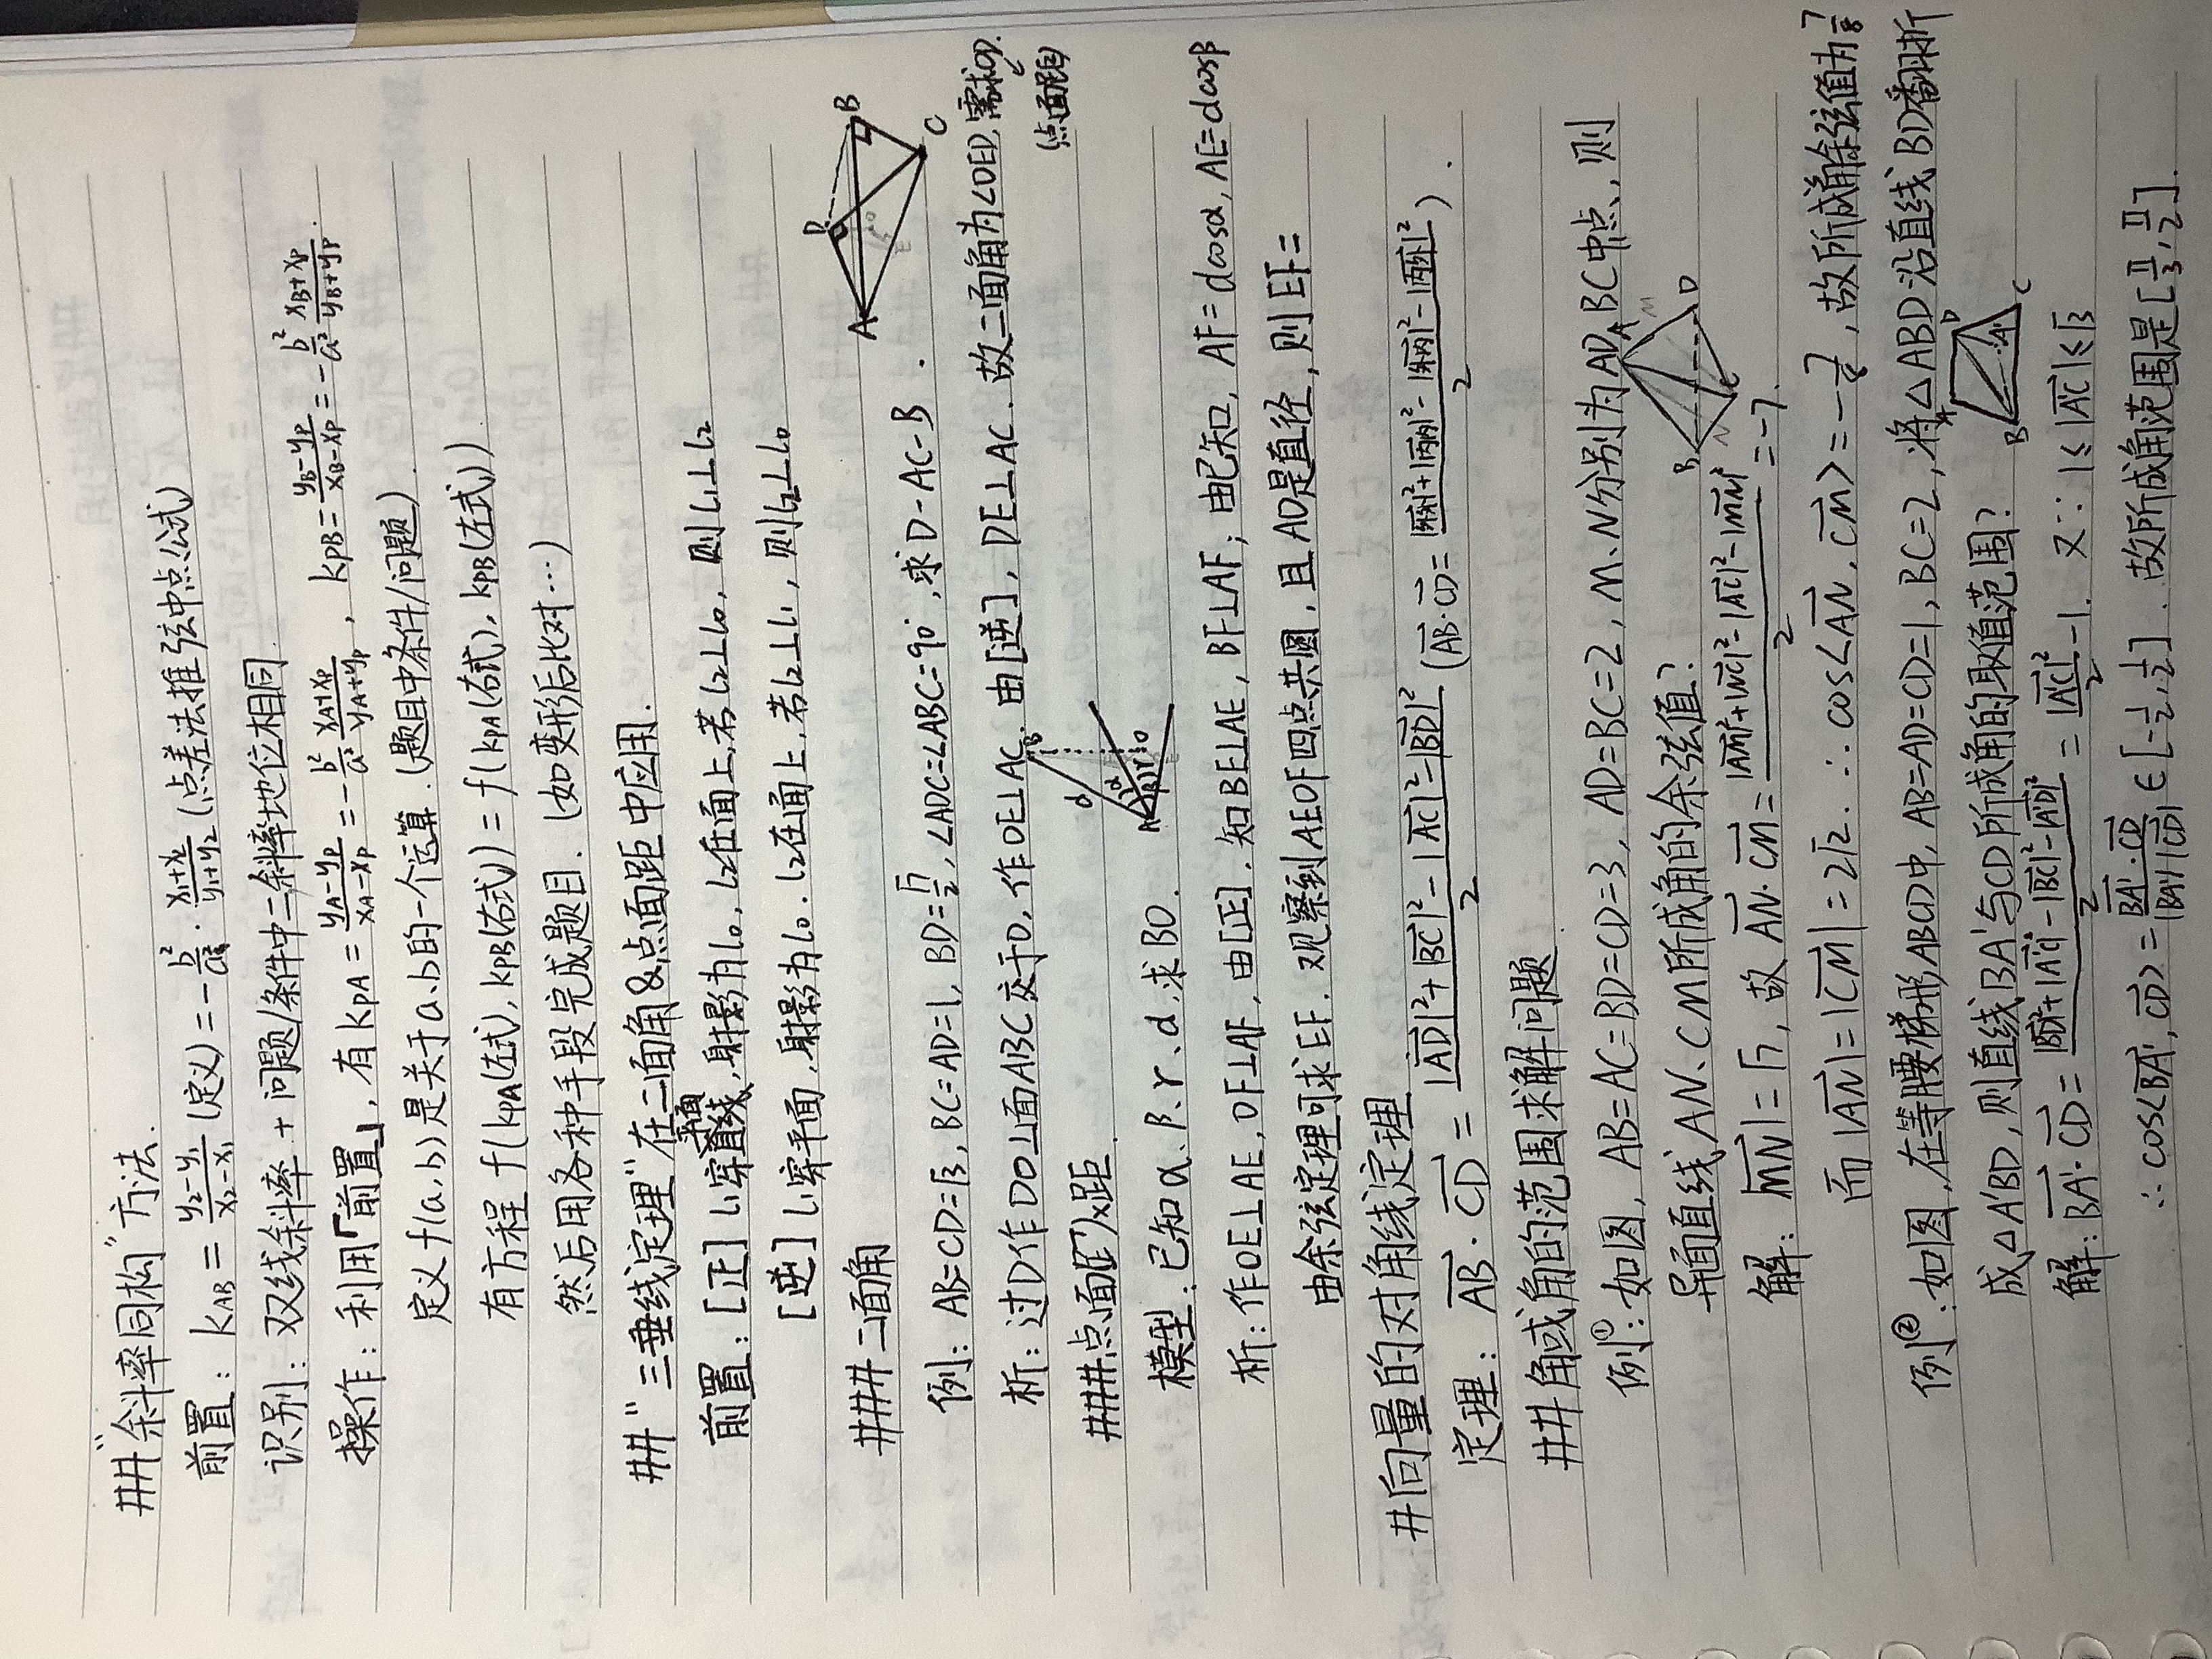 ## “斜率同构”方法.
前置：kAB = (y₂-y₁)/(x₂-x₁) (定义) = -b²/a² · (x₁+x₂)/(y₁+y₂) (点差法推弦中点公式)
识别：双线斜率 + 问题/条件中二斜率地位相同.
操作：利用「前置」, 有 kPA = (yA-yP)/(xA-xP) = -b²/a² (xA+xP)/(yA+yP), kPB = (yB-yP)/(xB-xP) = -b²/a² (xB+xP)/(yB+yP).
定义 f(a,b) 是关于 a、b 的一个运算. (题目中条件/问题)
有方程 f(kPA(左式), kPB(左式)) = f(kPA(右式), kPB(右式))
然后用各种手段完成题目. (如变形后比对…)
## “三垂线定理”在二面角&点面距中应用.
前置：[正] l₁穿平面, 射影为l₀, l₂在面上, 若l₂⊥l₀, 则l₁⊥l₂
[逆] l₁穿平面, 射影为l₀. l₂在面上, 若l₂⊥l₁, 则l₂⊥l₀
### 二面角
例：AB=CD=√3, BC=AD=1, BD=√7/2, ∠ADC=∠ABC=90°, 求D-AC-B.
A B C D E O
析：过D作DO⊥面ABC交于O, 作OE⊥AC, 由[逆], DE⊥AC. 故二面角为∠OED, 需求OD.
(点面距)
### 点面(距)距.
模型：已知α、β、γ、d, 求BO.
A B d α β γ O E
析：作OE⊥AE, OF⊥AF, 由[正], 知BE⊥AE, BF⊥AF; 由已知, AF=dcosα, AE=dcosβ
由余弦定理可求EF. 观察到AEOF四点共圆, 且AO是直径, 则EF=
# 向量的对角线定理
定理：AB·CD = (|AD|²+|BC|²-|AC|²-|BD|²)/2 (AB·CD = (|外外|²+|内内|²-|外内|²-|内外|²)/2).
## 角或角的范围求解问题
例①：如图, AB=AC=BD=CD=3, AD=BC=2, M、N分别为AD、BC中点, 则
异面直线AN、CM所成角的余弦值?
A B C D M N
解：|MN|=√7, 故AN·CM = (|AM|²+|NC|²-|AC|²-|MN|²)/2 = -7.
而|AN|=|CM|=2√2. ∴cos<AN,CM> = -7/8, 故所成角余弦值为7/8
例②：如图, 在等腰梯形ABCD中, AB=AD=CD=1, BC=2, 将△ABD沿直线BD翻折
成△A'BD, 则直线BA'与CD所成角的取值范围?
A B C D A'
解：BA'·CD = (|BD|²+|A'C|²-|BC|²-|A'D|²)/2 = |A'C|²/2 -1. 又∵ 1≤|A'C|≤√3
∴cos<BA',CD> = BA'·CD/(|BA'||CD|) ∈ [-1/2, 1/2]. 故所成角范围是[π/3, π/2].